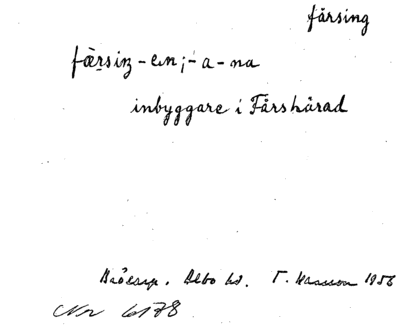 färsing
fæ̀rsiŋ - en; - a - na
inbyggare i Färshärad
Albo hd. T. Hansson 1956
Nr 6178